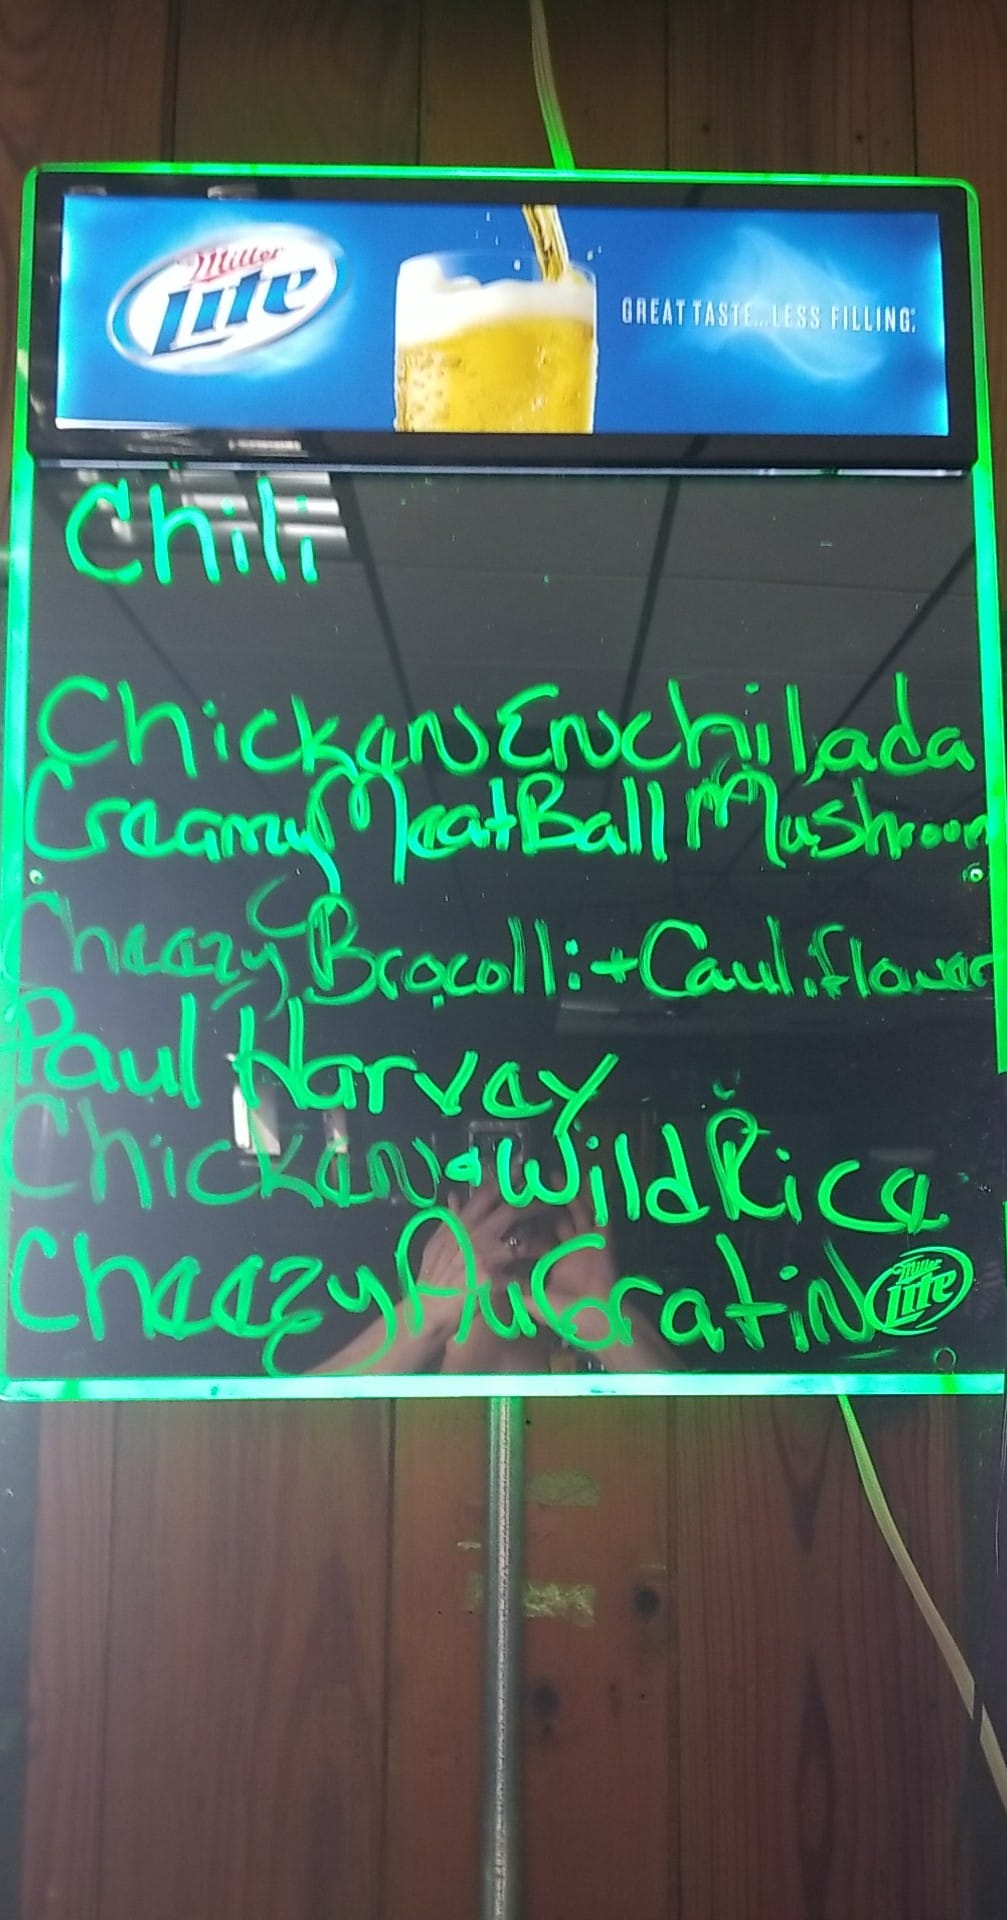 Miller
Lite
GREAT TASTE...LESS FILLING.
Chili
Chicken Enchilada
Creamy MeatBall Mushroom
Cheezy Brocolli + Cauliflower
Paul Harvey
Chicken & Wild Rice
Cheezy AuGratin
Miller
Lite